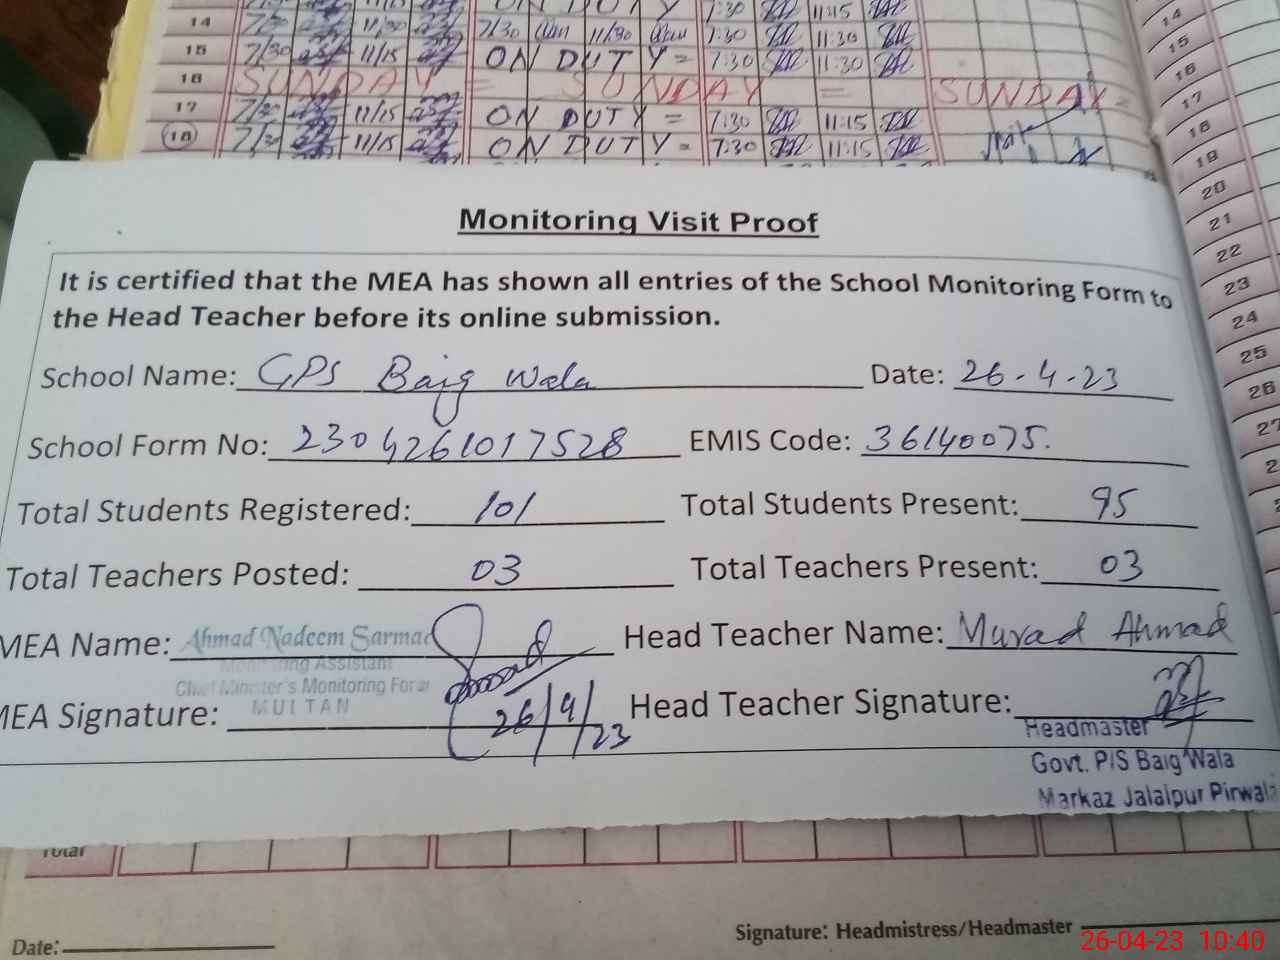 14 7/30 11/30 7/30 11/30 1:30 11:30 14
15 7/30 11/15 ON DUTY = 7:30 11:30 15
16 SUNDAY = SUNDAY = SUNDAY = 16
17 7/30 11/15 ON DUTY = 7:30 11:15 17
18 7/30 11/15 ON DUTY = 7:30 11:15 18
19
20
21
22
23
24
25
26
27
Monitoring Visit Proof
It is certified that the MEA has shown all entries of the School Monitoring Form to
the Head Teacher before its online submission.
School Name: GPS Baig Wala Date: 26-4-23
School Form No: 2304261017528 EMIS Code: 36140075.
Total Students Registered: 101 Total Students Present: 95
Total Teachers Posted: 03 Total Teachers Present: 03
MEA Name: Ahmad Nadeem Sarmad Head Teacher Name: Murad Ahmad
Monitoring Assistant
Chief Minister's Monitoring Force
MULTAN
MEA Signature: 26/4/23 Head Teacher Signature:
Headmaster
Govt. P/S Baig Wala
Markaz Jalalpur Pirwala
Total
Signature: Headmistress/Headmaster
Date:
26-04-23 10:40